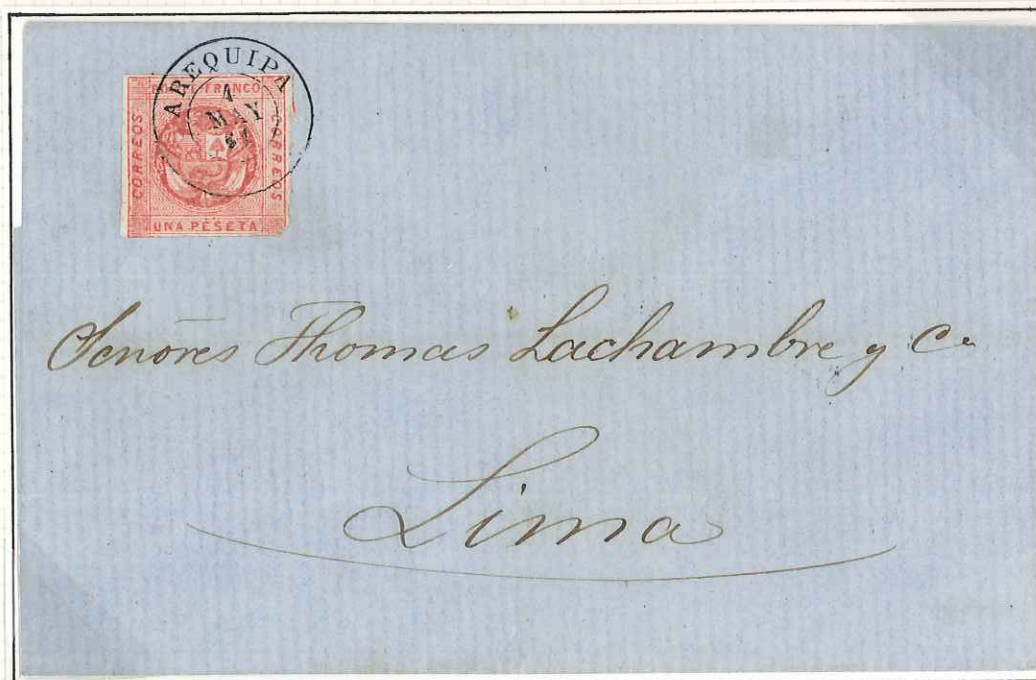 AREQUIPA
1
MAY
PORTE FRANCO
CORREOS
CORREOS
UNA PESETA
Senores Thomas Lachambre y Ca
Lima